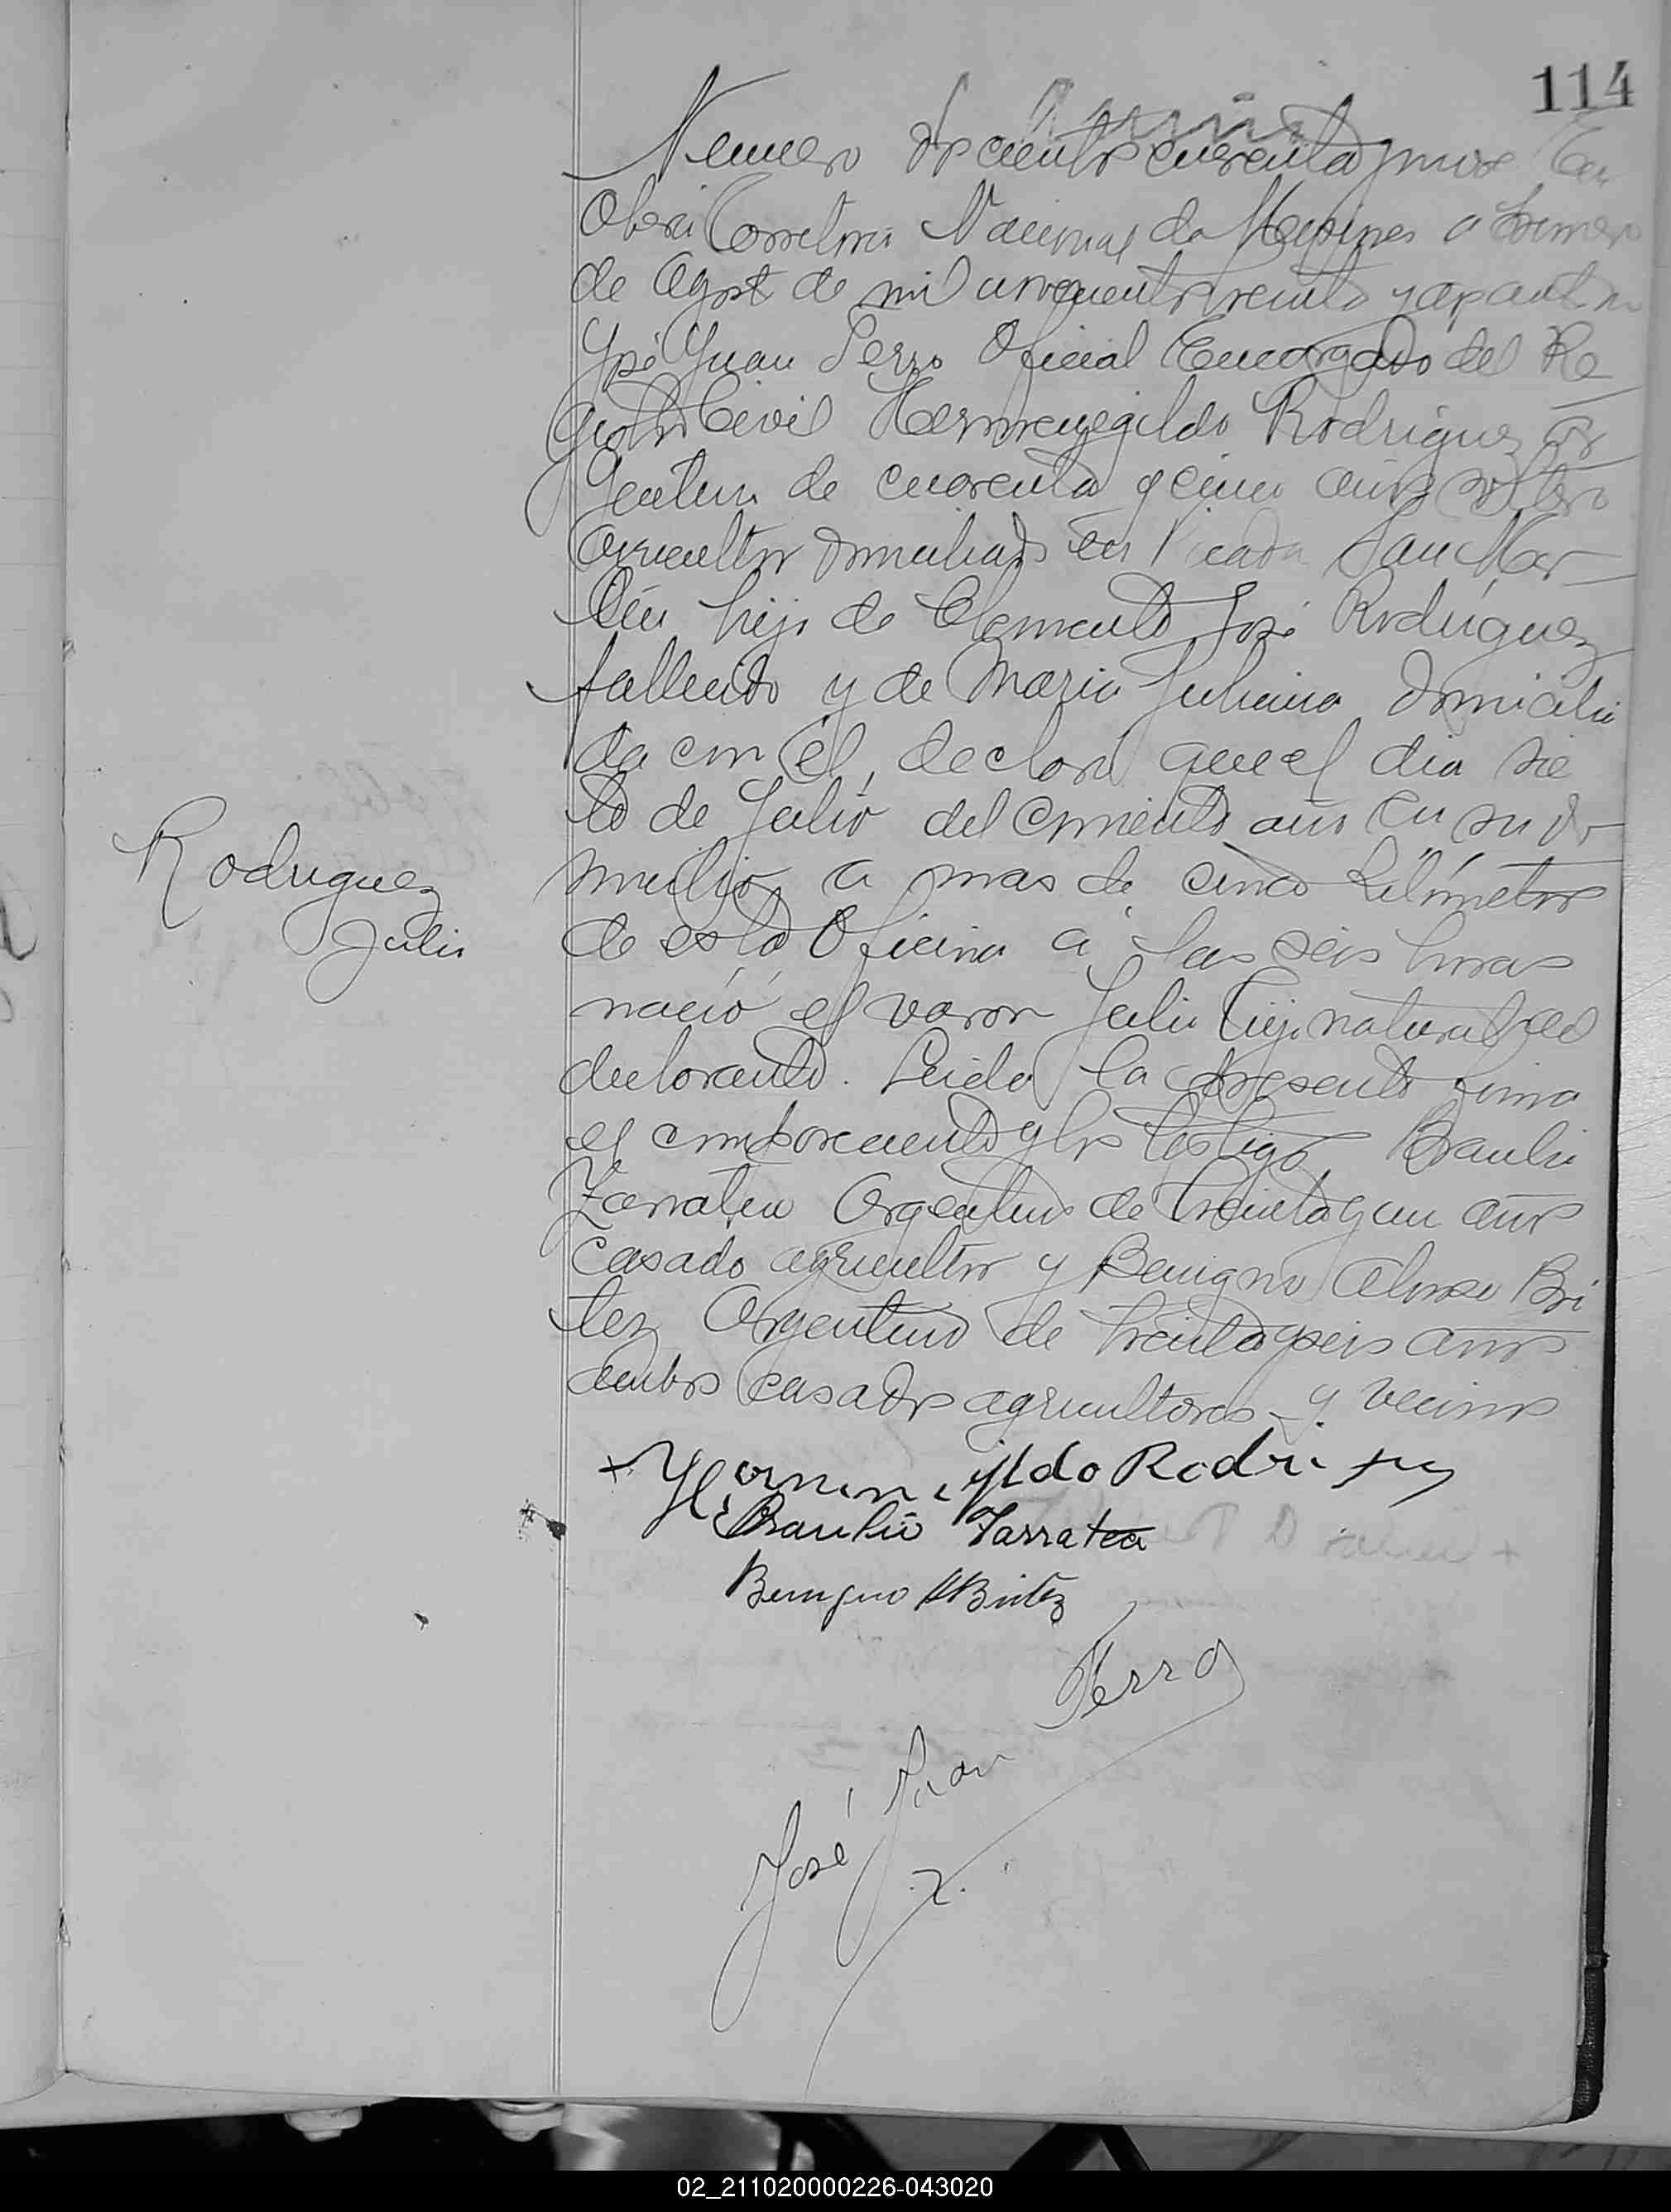 114
Numero doscientos cuarenta y nueve En
Oberá Territorio Nacional de Misiones a primero
de Agosto de mil novecientos treinta y ante mi
José Juan Perro Oficial Encargado del Re
gistro Civil Hermenegildo Rodriguez ar
gentino de cuarenta y cinco años soltero
agricultor domiciliado en Picada San Mar
tin hijo de Clemente José Rodríguez
fallecido y de Maria Juliana domicilia
da con él, declaró que el dia sie
te de Julio del corriente año en su do
micilio a mas de cinco kilómetros
de esta Oficina a las seis horas
nació el varon Julio hijo natural del
declarante. Leida la presente firma
el compareciente y los testigos Braulio
Zarratea Argentino de treinta y un años
casado agricultor y Benigno Alonso Bri
tez Argentino de treinta y seis años
ambos casados agricultores y vecinos
Rodriguez
Julio
+ Hermenegildo Rodriguez
Braulio Zarratea
Benigno A Britez
José Juan Perro